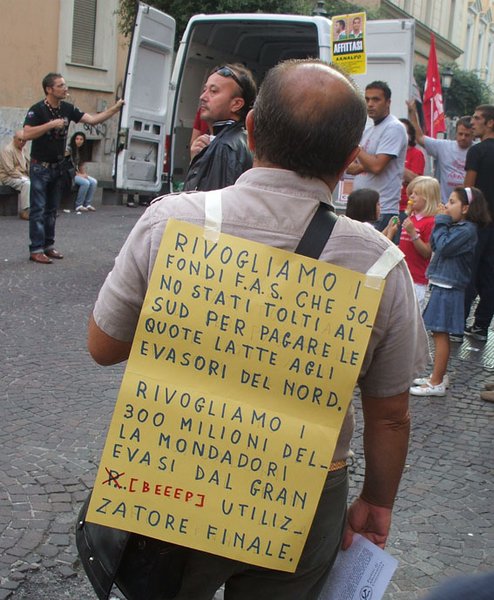 AFFITTASI
AFFITTASI
RIVOGLIAMO I
FONDI F.A.S. CHE SO-
NO STATI TOLTI AL
SUD PER PAGARE LE
QUOTE LATTE AGLI
EVASORI DEL NORD.
RIVOGLIAMO I
300 MILIONI DEL-
LA MONDADORI
EVASI DAL GRAN
[BEEEP] UTILIZ-
ZATORE FINALE.